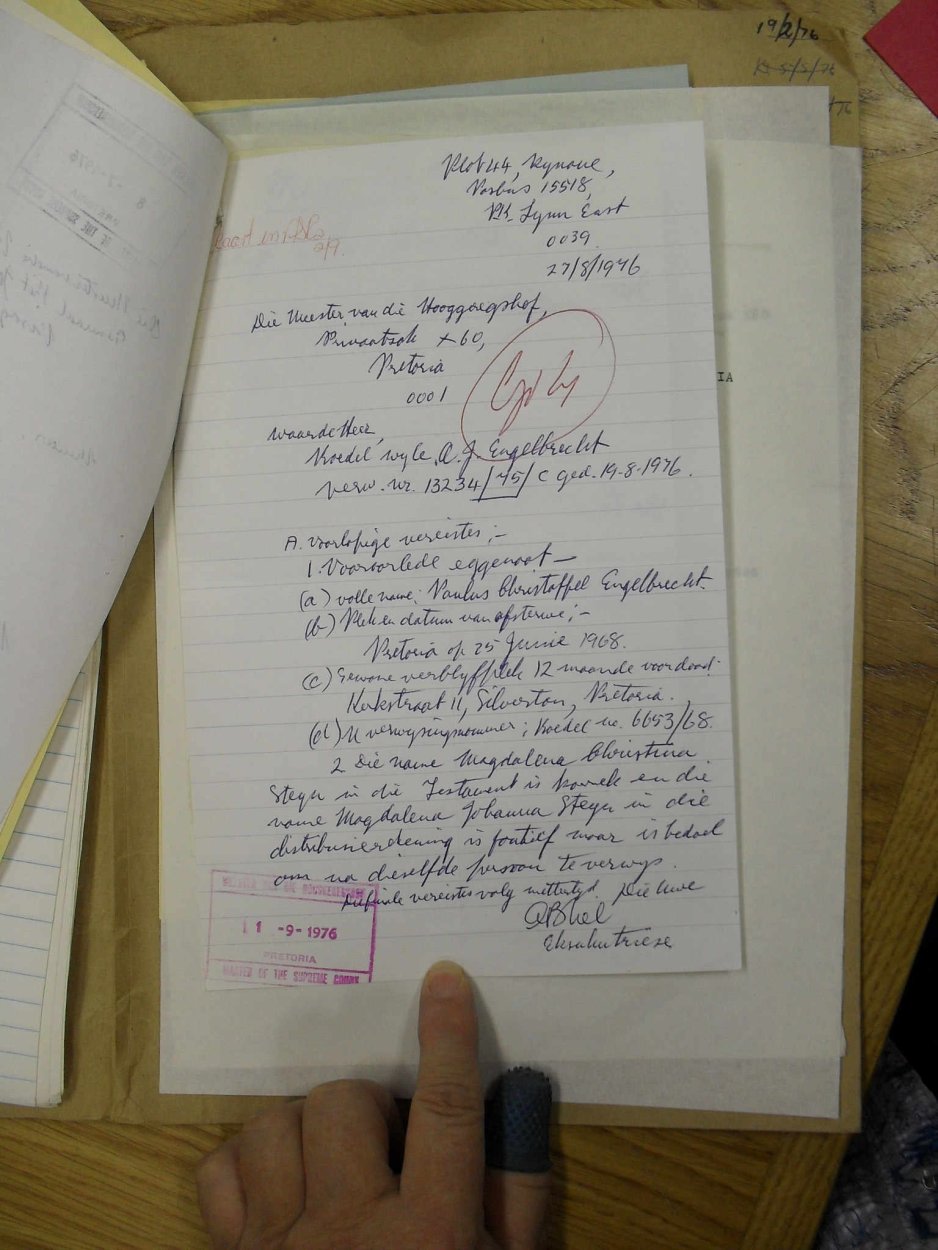 19/2/76
5/2/76
Plot 44, Kynoue,
Posbus 15518,
PK. Lynn East
0039
27/8/1976
2/9
Die Meester van die Hooggeregshof,
Privaatsak X60,
Pretoria
0001
IA
Waarde Heer,
Boedel wyle A.J. Engelbrecht
verw. nr. 13234/75/C ged. 19-8-1976.
A. Voorlopige vereistes;-
1. Vooroorlede eggenoot -
(a) volle name: Paulus Christoffel Engelbrecht
(b) Plek en datum van afsterwe;-
Pretoria op 25 Junie 1968.
(c) Gewone verblyfplek 12 maande voor dood:
Kerkstraat 11, Silverton, Pretoria.
(d) U verwysingsnommer; Boedel no. 6653/68.
2. Die name Magdalena Christina
Steyn in die Testament is korrek en die
name Magdalena Johanna Steyn in die
distribusierekening is foutief maar is bedoel
om na dieselfde persoon te verwys.
Die finale vereistes volg mettertyd. Die Uwe
Eksekutriese
11 -9- 1976
PRETORIA
MASTER OF THE SUPREME COURT